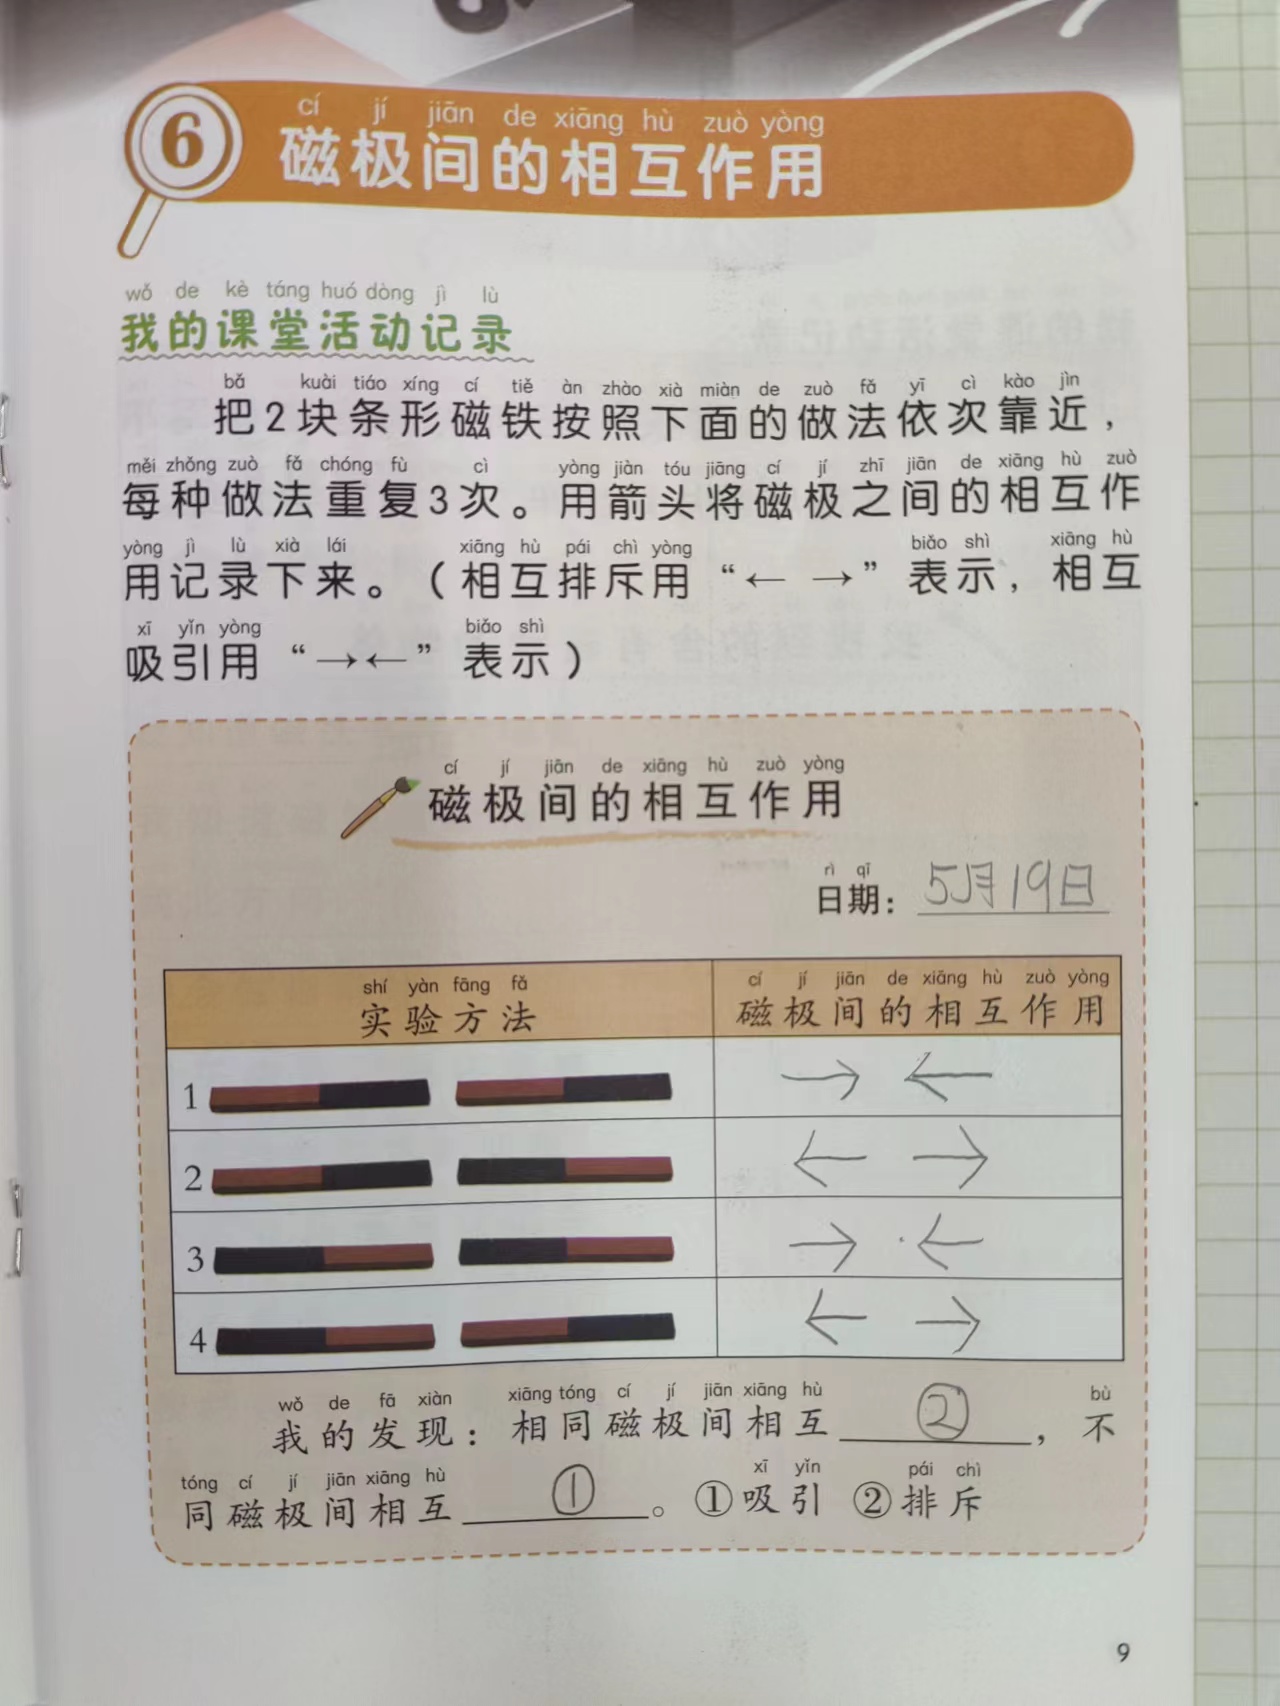 6
cí jí jiān de xiāng hù zuò yòng
磁极间的相互作用
wǒ de kè táng huó dòng jì lù
我的课堂活动记录
bǎ kuài tiáo xíng cí tiě àn zhào xià miàn de zuò fǎ yī cì kào jìn
把2块条形磁铁按照下面的做法依次靠近，
měi zhǒng zuò fǎ chóng fù cì yòng jiàn tóu jiāng cí jí zhī jiān de xiāng hù zuò
每种做法重复3次。用箭头将磁极之间的相互作
yòng jì lù xià lái xiāng hù pái chì yòng biǎo shì xiāng hù
用记录下来。（相互排斥用“← →”表示，相互
xī yǐn yòng biǎo shì
吸引用“→←”表示）
cí jí jiān de xiāng hù zuò yòng
磁极间的相互作用
rì qī
日期：5月19日
shí yàn fāng fǎ cí jí jiān de xiāng hù zuò yòng
实验方法 磁极间的相互作用
1 → ←
2 ← →
3 → ←
4 ← →
wǒ de fā xiàn xiāng tóng cí jí jiān xiāng hù bù
我的发现：相同磁极间相互②，不
tóng cí jí jiān xiāng hù xī yǐn pái chì
同磁极间相互①。①吸引 ②排斥
9